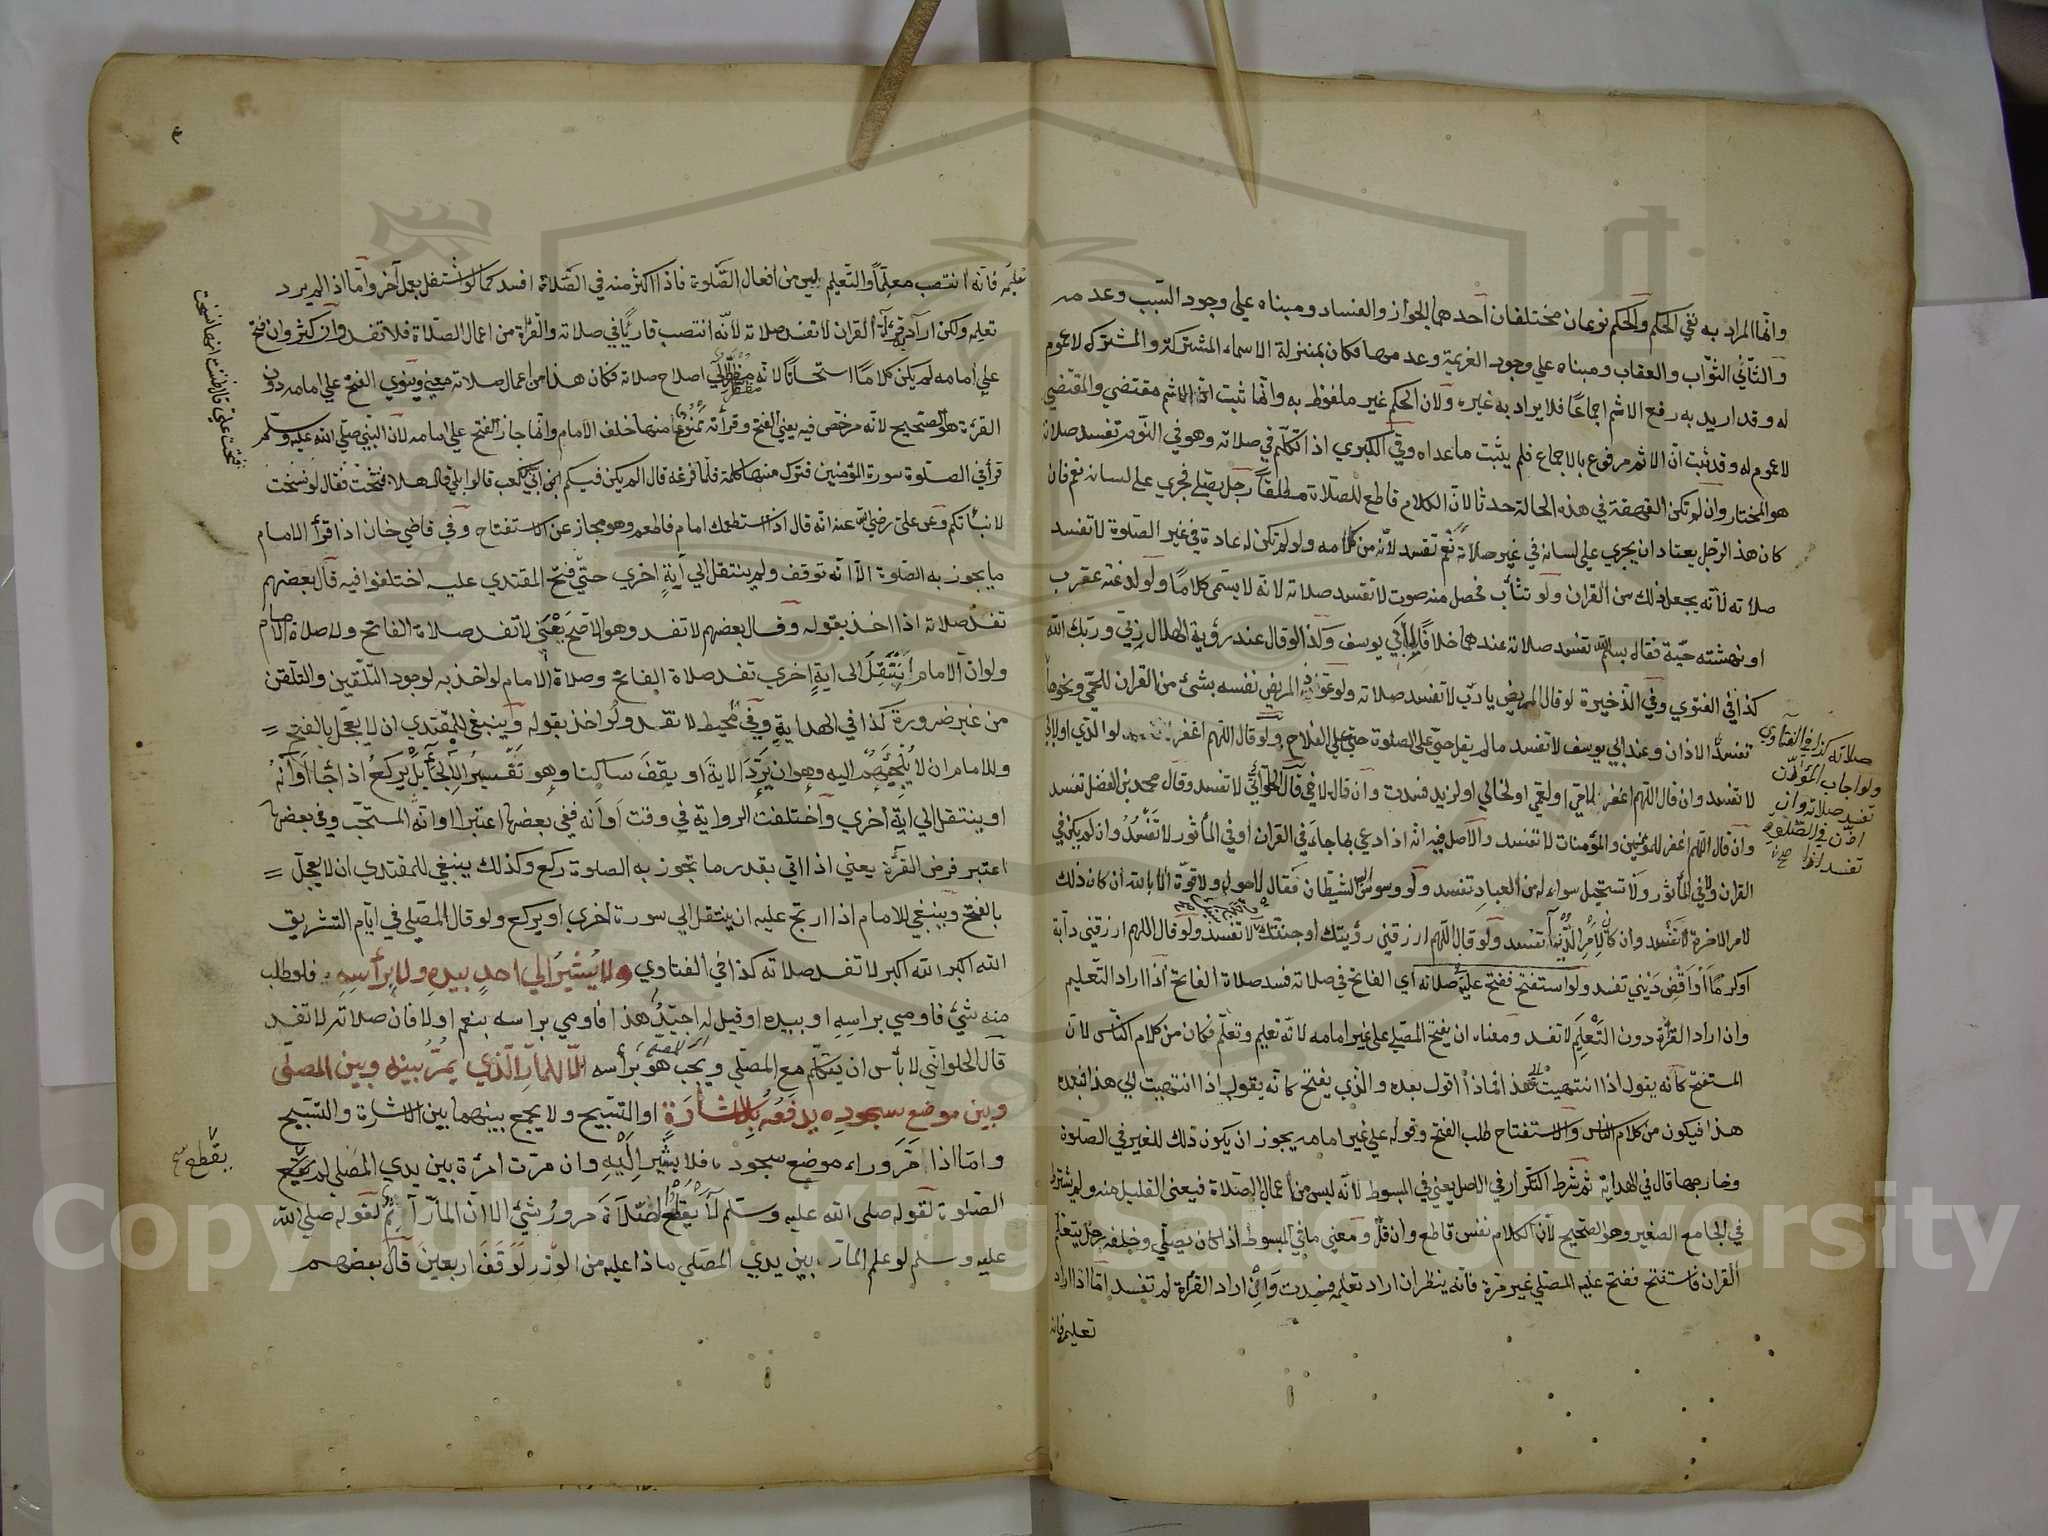 وانما المراد به نفي الحكم والحكم نوعان مختلفان احدهما الجواز والفساد ومبناه علي وجود السبب وعدمه
والثاني الثواب والعقاب ومبناه علي وجود العزيمة وعدمها فكان بمنزلة الاسماء المشتركة والمشترك لا عموم
له وقد اريد به رفع الاثم اجماعا فلا يراد به غيره ولان الحكم غير ملفوظ به وانما ثبت ان الاثم مقتضي والمقتضي
لا عموم له وقد ثبت ان الاثم مرفوع بالاجماع فلم يثبت ماعداه وفي الكبري اذا تكلم في صلاته وهو في النوم تفسد صلاته
هو المختار وان لم تكن القهقهة في هذه الحالة حدثا لان الكلام قاطع للصلاة مطلقا رجل يصلي فجري علي لسانه نعم فان
كان هذا الرجل يعتاد ان يجري علي لسانه في غير صلاة نعم تفسد لانه من كلامه ولو لم تكن له عادة في غير الصلوة لا تفسد
صلاته لانه يجعل ذلك من القران ولو تثأب فحصل منه صوت لا تفسد صلاته لانه لا يسمي كلاما ولو لدغته عقرب
او نهشته حية فقال بسم الله تفسد صلاته عندهما خلافا لابي يوسف وكذا لو قال عند رؤية الهلال ربي وربك الله
كذا في الفتوي وفي الذخيرة لو قال المريض يا رب لا تفسد صلاته ولو عوذ المريض نفسه بشئ من القران للحمي ونحوها
تفسد الاذان وعند ابي يوسف لا تفسد ما لم يقل حي علي الصلوة حي علي الفلاح ولو قال اللهم اغفر لي ولوالدي
لا تفسد وان قال اللهم اغفر لاخي او لعمي او لخالي او لزيد فسدت وان قال لاخي قال الحلواني لا تفسد وقال محمد بن الفضل تفسد
وان قال اللهم اغفر للمؤمنين والمؤمنات لا تفسد والاصل فيه انه اذا دعي بما جاء في القران او في المأثور لا تفسد وان لم يكن في
القران ولا في المأثور ولا تستحيل سؤاله من العباد تفسد ولو وسوس الشيطان فقال لا حول ولا قوة الا بالله ان كان ذلك
لامر الاخرة لا تفسد وان كان لامر الدنيا تفسد ولو قال اللهم ارزقني رؤيتك او جنتك لا تفسد ولو قال اللهم ارزقني دابة
او كرما او اقض ديني تفسد ولو استفتح ففتح عليه صلاته اي الفاتح في صلاته فسد صلاة الفاتح اذا اراد التعليم
وان اراد القرأة دون التعليم لا تفسد ومعناه ان يفتح المصلي علي غير امامه لانه تعليم وتعلم فكان من كلام الناس لان
المستفتح كانه يقول اذا انتهيت هذا فماذا اقول بعده والذي يفتح كانه يقول اذا انتهيت الي هذا فبعده
هذا فيكون من كلام الناس والاستفتاح طلب الفتح وقوله علي غير امامه يجوز ان يكون ذلك للغير في الصلوة
وخارجها قال في الهداية ثم شرط التكرار في الاصل يعني في المبسوط لانه ليس من اعمال الصلاة فيعفي القليل منه ولم يشترط
في الجامع الصغير وهو الصحيح لان الكلام نفس قاطع وان قل ومعني ما في المبسوط اذا كان يصلي وخلفه رجل يتعلم
القران فاستفتح ففتح عليه المصلي غير مرة فانه ينظر ان اراد تعليمه فسدت وان اراد القرأة لم تفسد اما اذا اراد
تعليمه فانه
صلاته كذا في الفتاوي
ولو اجاب المؤذن
تفسد صلاته وان
اذن في الصلوة
تفسد اذا صح
تعليمه فانه انتصب معلما والتعليم ليس من افعال الصلوة فاذا اكثر منه في الصلاة افسد كما لو اشتغل بعمل آخر واما اذا لم يرد
تعليمه ولكن اراد قرأة القران لا تفسد صلاته لانه انتصب قاريا في صلاته والقرأة من اعمال الصلاة فلا تفسد وان كثر وان فتح
علي امامه لم يكن كلاما استحسانا لانه مضطر الي اصلاح صلاته فكان هذا من اعمال صلاته معني وينوي الفتح علي امامه دون
القرءة هو الصحيح لانه مرخص فيه يعني الفتح وقرأته ممنوع منها خلف الامام وانما جاز الفتح علي امامه لان النبي صلي الله عليه وسلم
قرأ في الصلوة سورة المؤمنين فترك منها كلمة فلما فرغ قال الم يكن فيكم ابي بن كعب قالوا بلي قال هلا فتحت فقال لو نسخت
لانبأتكم وعن علي رضي الله عنه انه قال اذا استطعمك امام فاطعمه وهو مجاز عن الاستفتاح وفي قاضي خان اذا قرأ الامام
ما يجوز به الصلوة الا انه توقف ولم ينتقل الي آية اخري حتي فتح المقتدي عليه اختلفوا فيه قال بعضهم
تفسد صلاته اذا اخذ بقوله وقال بعضهم لا تفسد وهو الاصح يعني لا تفسد صلاة الفاتح ولا صلاة الامام
ولو ان الامام انتقل الي اية اخري تفسد صلاة الفاتح وصلاة الامام لو اخذ به لوجود التلقين والتلقن
من غير ضرورة كذا في الهداية وفي المحيط لا تفسد ولو اخذ بقوله وينبغي للمقتدي ان لا يعجل بالفتح
وللامام ان لا يلجيهم اليه وهو ان يردد الاية او يقف ساكتا وهو تفسير الالجاء بل يركع اذا جا اوانه
او ينتقل الي اية اخري واختلفت الرواية في وقت اوانه ففي بعضها اعتبر اوانه المستحب وفي بعضها
اعتبر فرض القرأة يعني اذا اتي بقدر ما تجوز به الصلوة ركع وكذلك ينبغي للمقتدي ان لا يعجل
بالفتح وينبغي للامام اذا ارتج عليه ان ينتقل الي سورة اخري او يركع ولو قال المصلي في ايام التشريق
الله اكبر الله اكبر لا تفسد صلاته كذا في الفتاوي ولا يشير الي احد بيده ولا برأسه فلو طلب
منه شئ فاومي براسه او بيده او قيل له اجيد هذا فاومي براسه بنعم او لا فان صلاته لا تفسد
قال الحلواني لا بأس ان يتكلم مع المصلي ويجيب هو برأسه الا المار الذي يمر بينه وبين المصلى
وبين موضع سجوده يدفعه بالاشارة او التسبيح ولا يجمع بينهما بين الاشارة والتسبيح
واما اذا مر وراء موضع سجوده فلا يشير اليه وان مرت امرأة بين يدي المصلي لم يقطع
الصلوة لقوله صلى الله عليه وسلم لا يقطع الصلاة مرور شئ الا ان المار آثم لقوله صلي الله
عليه وسلم لو علم المار بين يدي المصلي ماذا عليه من الوزر لوقف اربعين قال بعضهم
فتحت علي قال ظننت انها نسخت
يقطع صح
Copyright © King Saud University